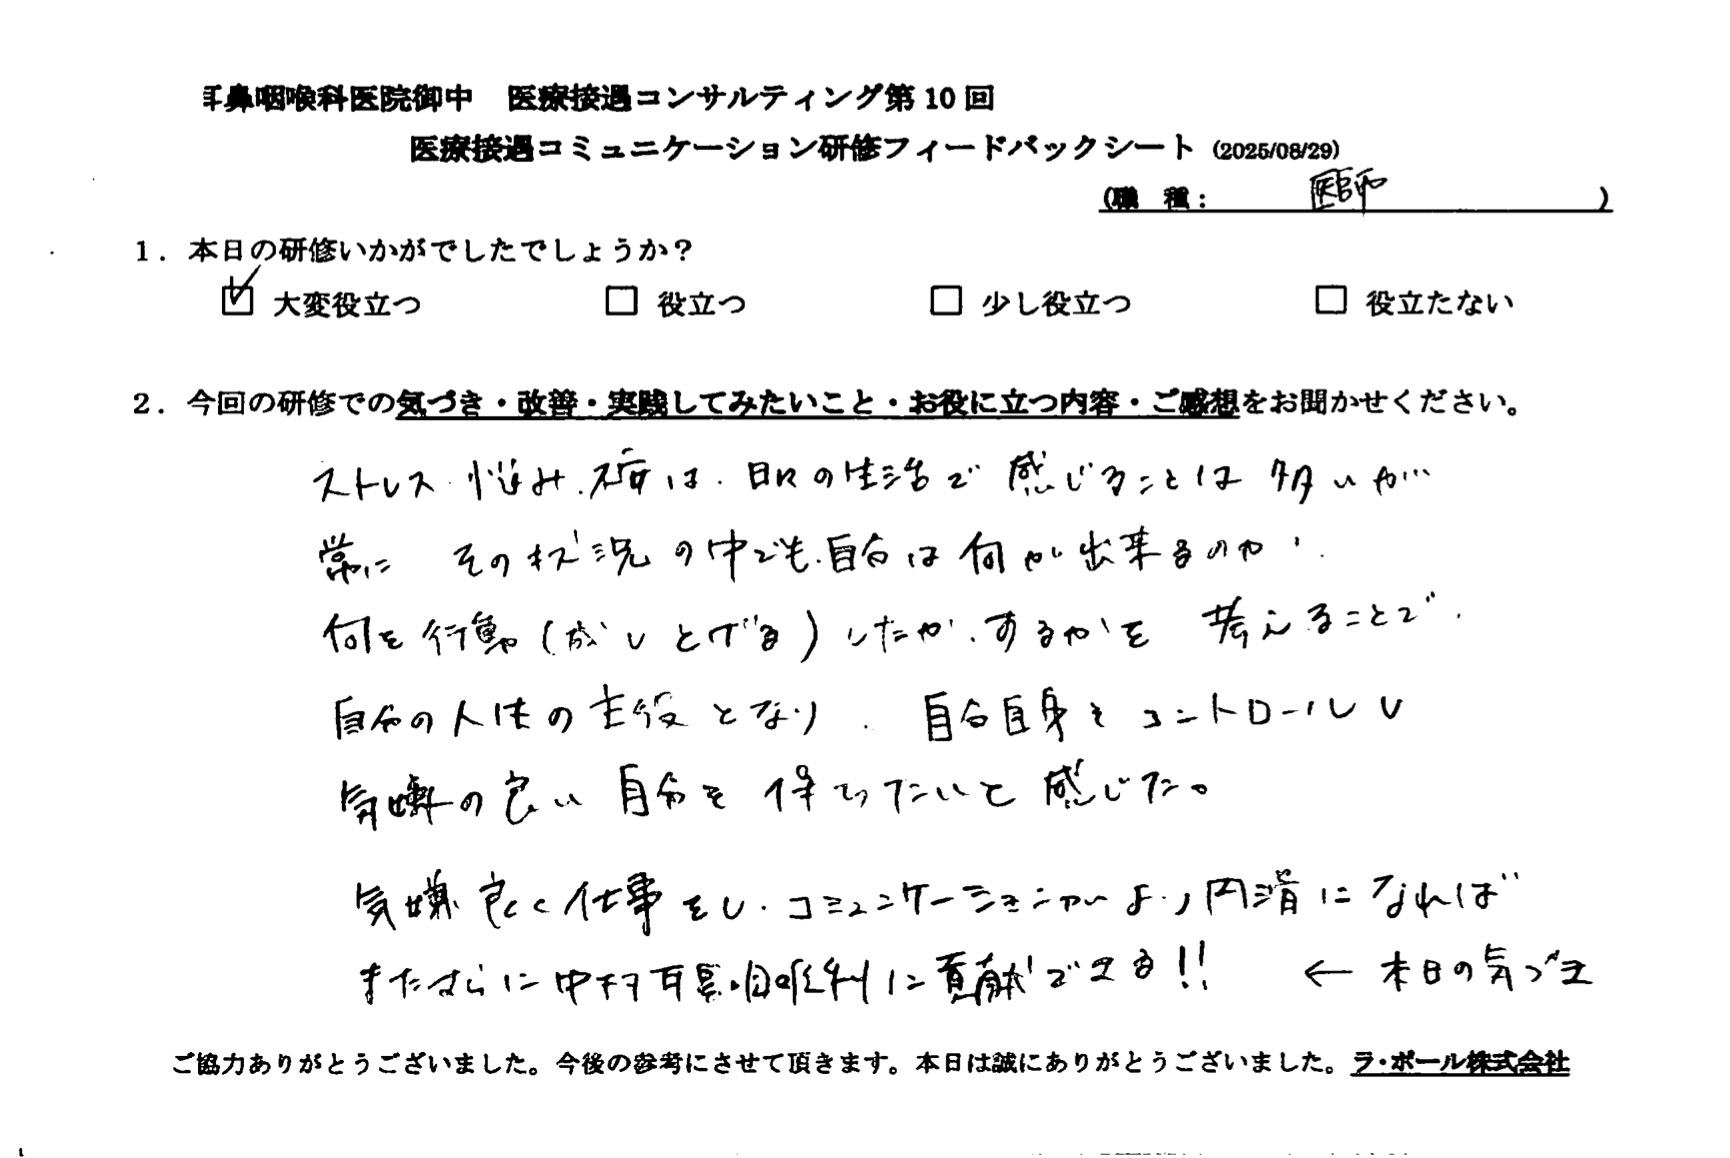 耳鼻咽喉科医院御中 医療接遇コンサルティング第10回
医療接遇コミュニケーション研修フィードバックシート (2025/08/29)
(職 種: 医師 )
1. 本日の研修いかがでしたでしょうか?
☑ 大変役立つ □ 役立つ □ 少し役立つ □ 役立たない
2. 今回の研修での気づき・改善・実践してみたいこと・お役に立つ内容・ご感想をお聞かせください。
ストレス、悩み、不安は、日々の生活で感じることは多いが…
常に その状況の中でも、自分は何が出来るのか、
何を行動(成しとげる)したか、するかを考えることで、
自分の人生の主役となり、自分自身をコントロールし
気嫌の良い自分を保ちたいと感じた。
気嫌良く仕事をし、コミュニケーションがより円滑になれば
またさらに中村耳鼻咽喉科に貢献できる!! ← 本日の気づき
ご協力ありがとうございました。今後の参考にさせて頂きます。本日は誠にありがとうございました。ラ・ポール株式会社